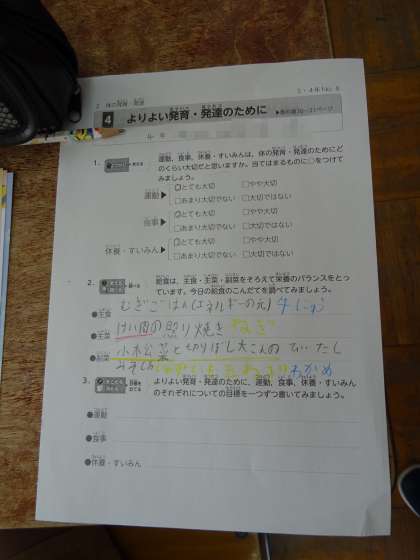 2 体の発育・発達
3・4年 No. 8
4 よりよい発育・発達のために ▶教科書30~31ページ
年 組
1. 運動、食事、休養・すいみんは、体の発育・発達のためにど
のくらい大切だと思いますか。当てはまるものに○をつけて
みましょう。
運動 とても大切 やや大切
あまり大切でない 大切ではない
食事 とても大切 やや大切
あまり大切でない 大切ではない
休養・すいみん とても大切 やや大切
あまり大切でない 大切ではない
2. 給食は、主食・主菜・副菜をそろえて栄養のバランスをとっ
ています。今日の給食のこんだてを調べてみましょう。
●主食 むぎごはん(エネルギーの元)
●主菜 けい肉の照り焼き ねぎ
●副菜 小松菜と切りぼし大こんの
みそしる わかめ
3. よりよい発育・発達のために、運動、食事、休養・すいみん
のそれぞれについての目標を一つずつ書いてみましょう。
●運動
●食事
●休養・すいみん